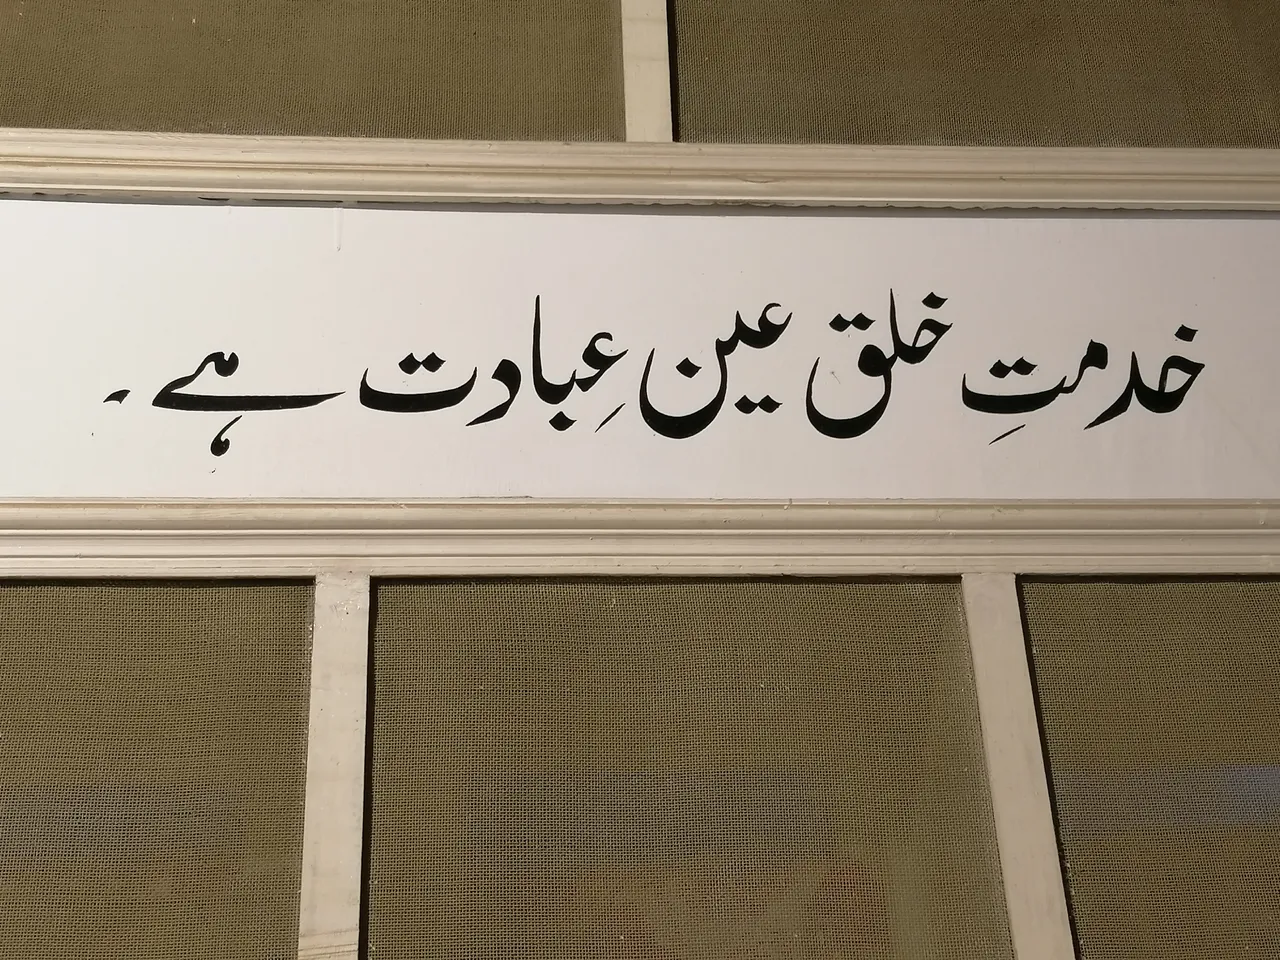 خدمتِ خلق عین عِبادت ہے۔